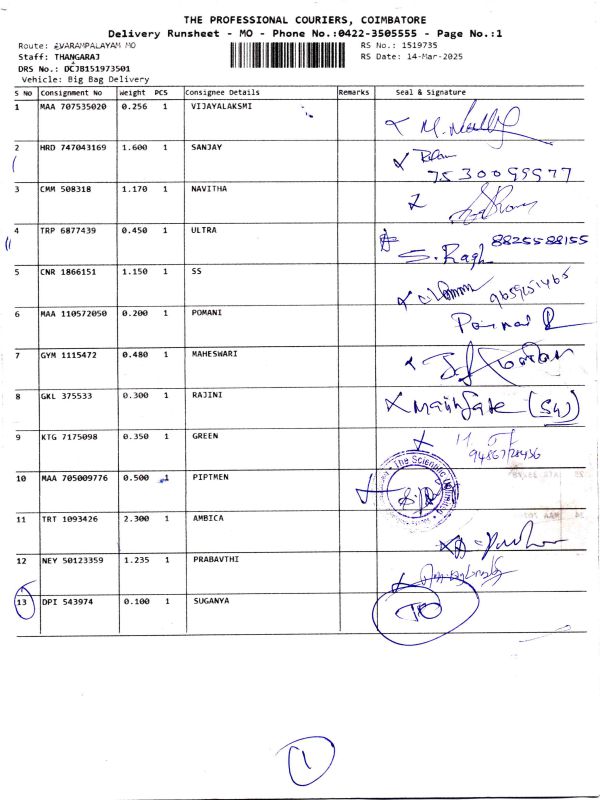 THE PROFESSIONAL COURIERS, COIMBATORE
Delivery Runsheet - MO - Phone No.:0422-3505555 - Page No.:1
Route: EVARAMPALAYAM MO
RS No.: 1519735
Staff: THANGARAJ
RS Date: 14-Mar-2025
DRS No.: DCJB151973501
Vehicle: Big Bag Delivery
S NO Consignment No Weight PCS Consignee Details Remarks Seal & Signature
1 MAA 707535020 0.256 1 VIJAYALAKSMI
2 HRD 747043169 1.600 1 SANJAY
7530099977
3 CMM 508318 1.170 1 NAVITHA
4 TRP 6877439 0.450 1 ULTRA 8825588155
S. Ragh
5 CNR 1866151 1.150 1 SS 9659151465
6 MAA 110572050 0.200 1 POMANI
7 GYM 1115472 0.480 1 MAHESWARI
8 GKL 375533 0.300 1 RAJINI Maingate (SW)
9 KTG 7175098 0.350 1 GREEN
9486728436
10 MAA 705009776 0.500 1 PIPTMEN The Scientific
11 TRT 1093426 2.300 1 AMBICA
12 NEY 50123359 1.235 1 PRABAVTHI
13 DPI 543974 0.100 1 SUGANYA TO
1